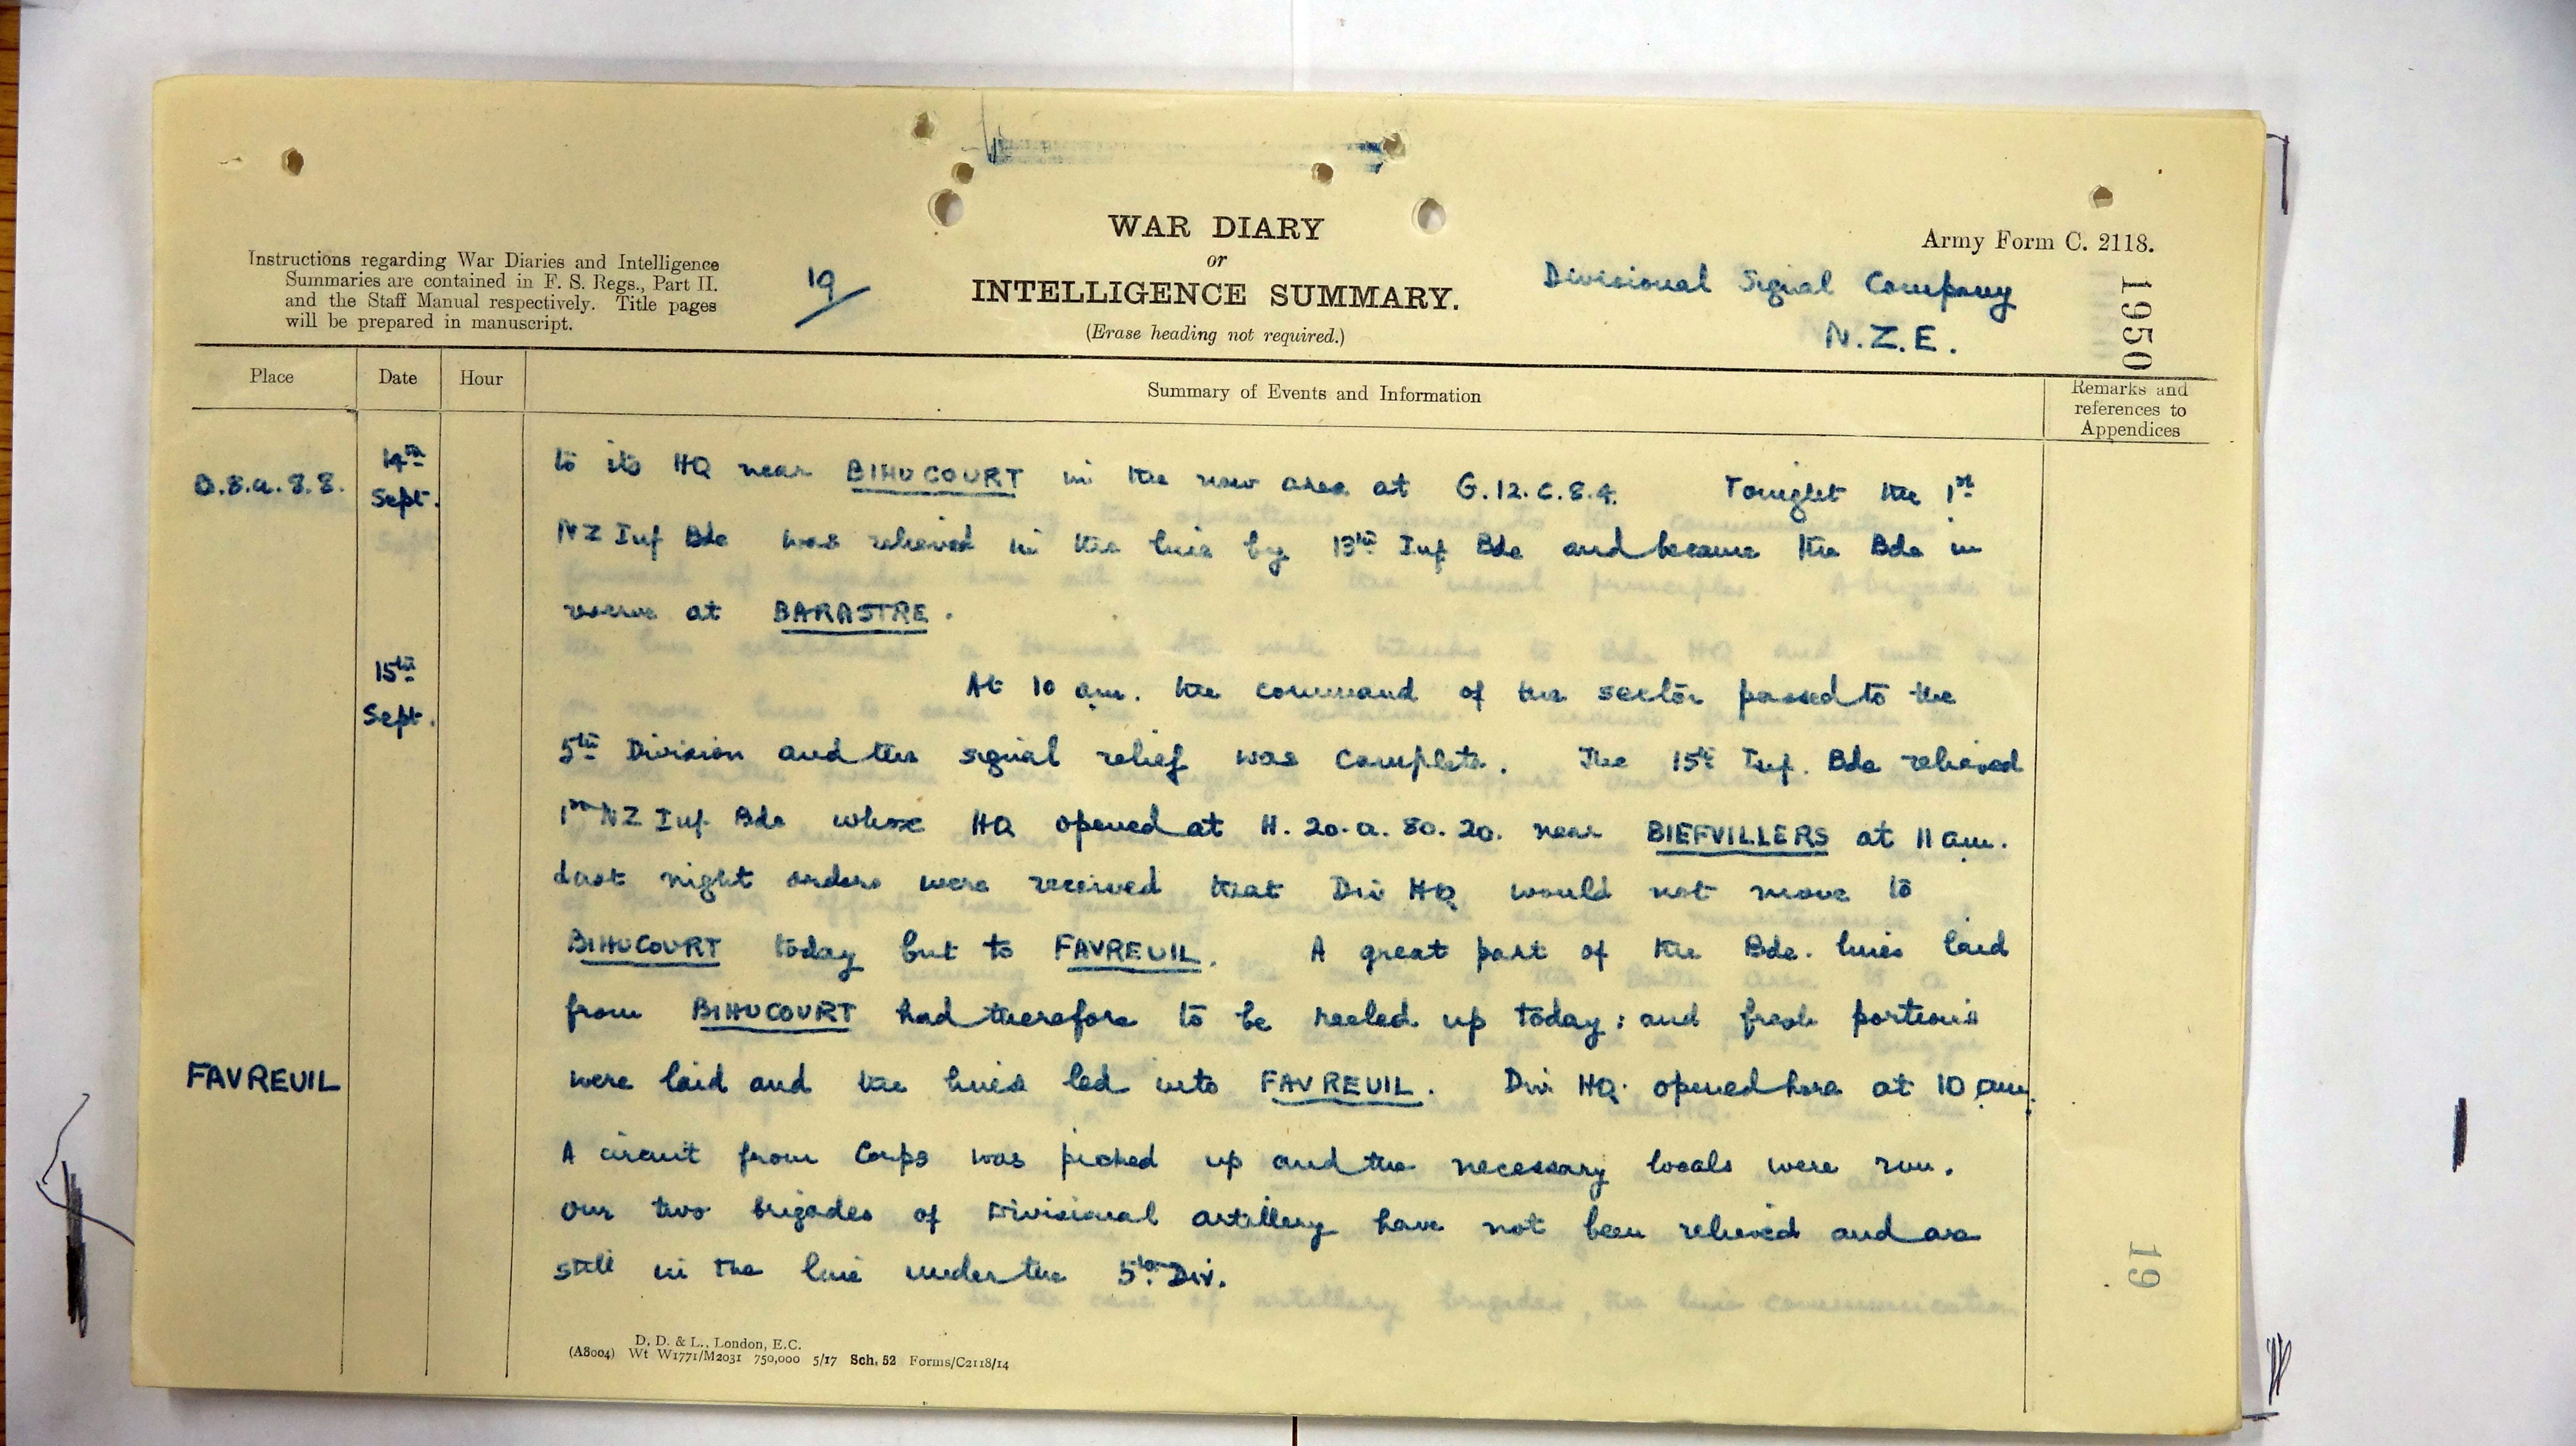 WAR DIARY
or
INTELLIGENCE SUMMARY.
(Erase heading not required.)
Army Form C. 2118.
Instructions regarding War Diaries and Intelligence
Summaries are contained in F. S. Regs., Part II.
and the Staff Manual respectively. Title pages
will be prepared in manuscript.
19/
Divisional Signal Company
N.Z.E.
1950
Place Date Hour Summary of Events and Information Remarks and
references to
Appendices
14th
Sept.
to its HQ near BIHUCOURT in the new area at G.12.c.8.4. Tonight the 1st
NZ Inf Bde was relieved in the line by 13th Inf Bde and became the Bde in
reserve at BARASTRE.
15th
Sept.
At 10 am. the command of the sector passed to the
5th Division and the signal relief was complete. The 15th Inf. Bde relieved
1st NZ Inf Bde whose HQ opened at H. 20. a. 80. 20. near BIEFVILLERS at 11 am.
Last night orders were received that Div HQ would not move to
BIHUCOURT today but to FAVREUIL. A great part of the Bde. lines laid
from BIHUCOURT had therefore to be reeled up today; and fresh portions
FAVREUIL were laid and the lines led into FAVREUIL. Div HQ. opened here at 10 am.
A circuit from Corps was picked up and the necessary locals were run.
Our two brigades of Divisional artillery have not been relieved and are
still in the line under the 5th Div.
19
D. D. & L., London, E.C.
(A8004) Wt W1771/M2031 750,000 5/17 Sch. 52 Forms/C2118/14